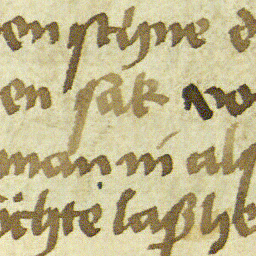 en schyne d
en sak vo
man in als
ochte laß he